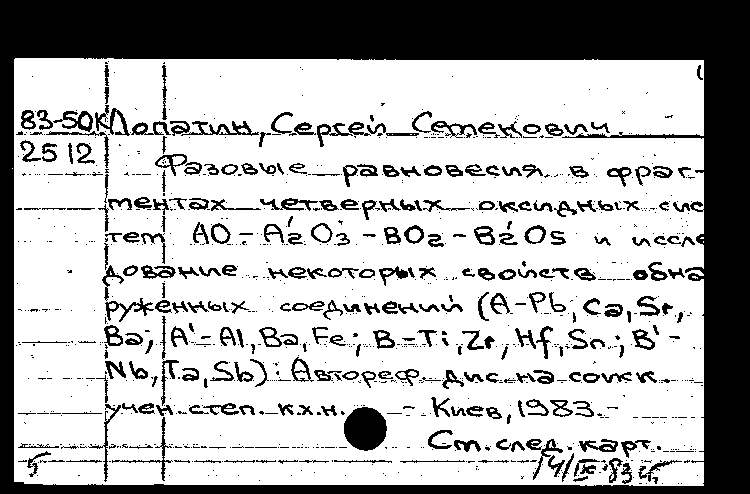 83-50К Лопатин, Сергей Семенович.
2512 Фазовые равновесия в фраг-
ментах четверных оксидных сис
тем AO - A'2O3 - BO2 - B2'O5 и иссле
дование некоторых свойств обна
руженных соединений (A-Pb, Ca, Sr,
Ba; A'-Al, Ba, Fe; B-Ti, Zr, Hf, Sn; B'-
Nb, Ta, Sb): Автореф. дис. на соиск.
учен. степ. к.х.н. - Киев, 1983.-
См. след. карт.
5 14/IX-83